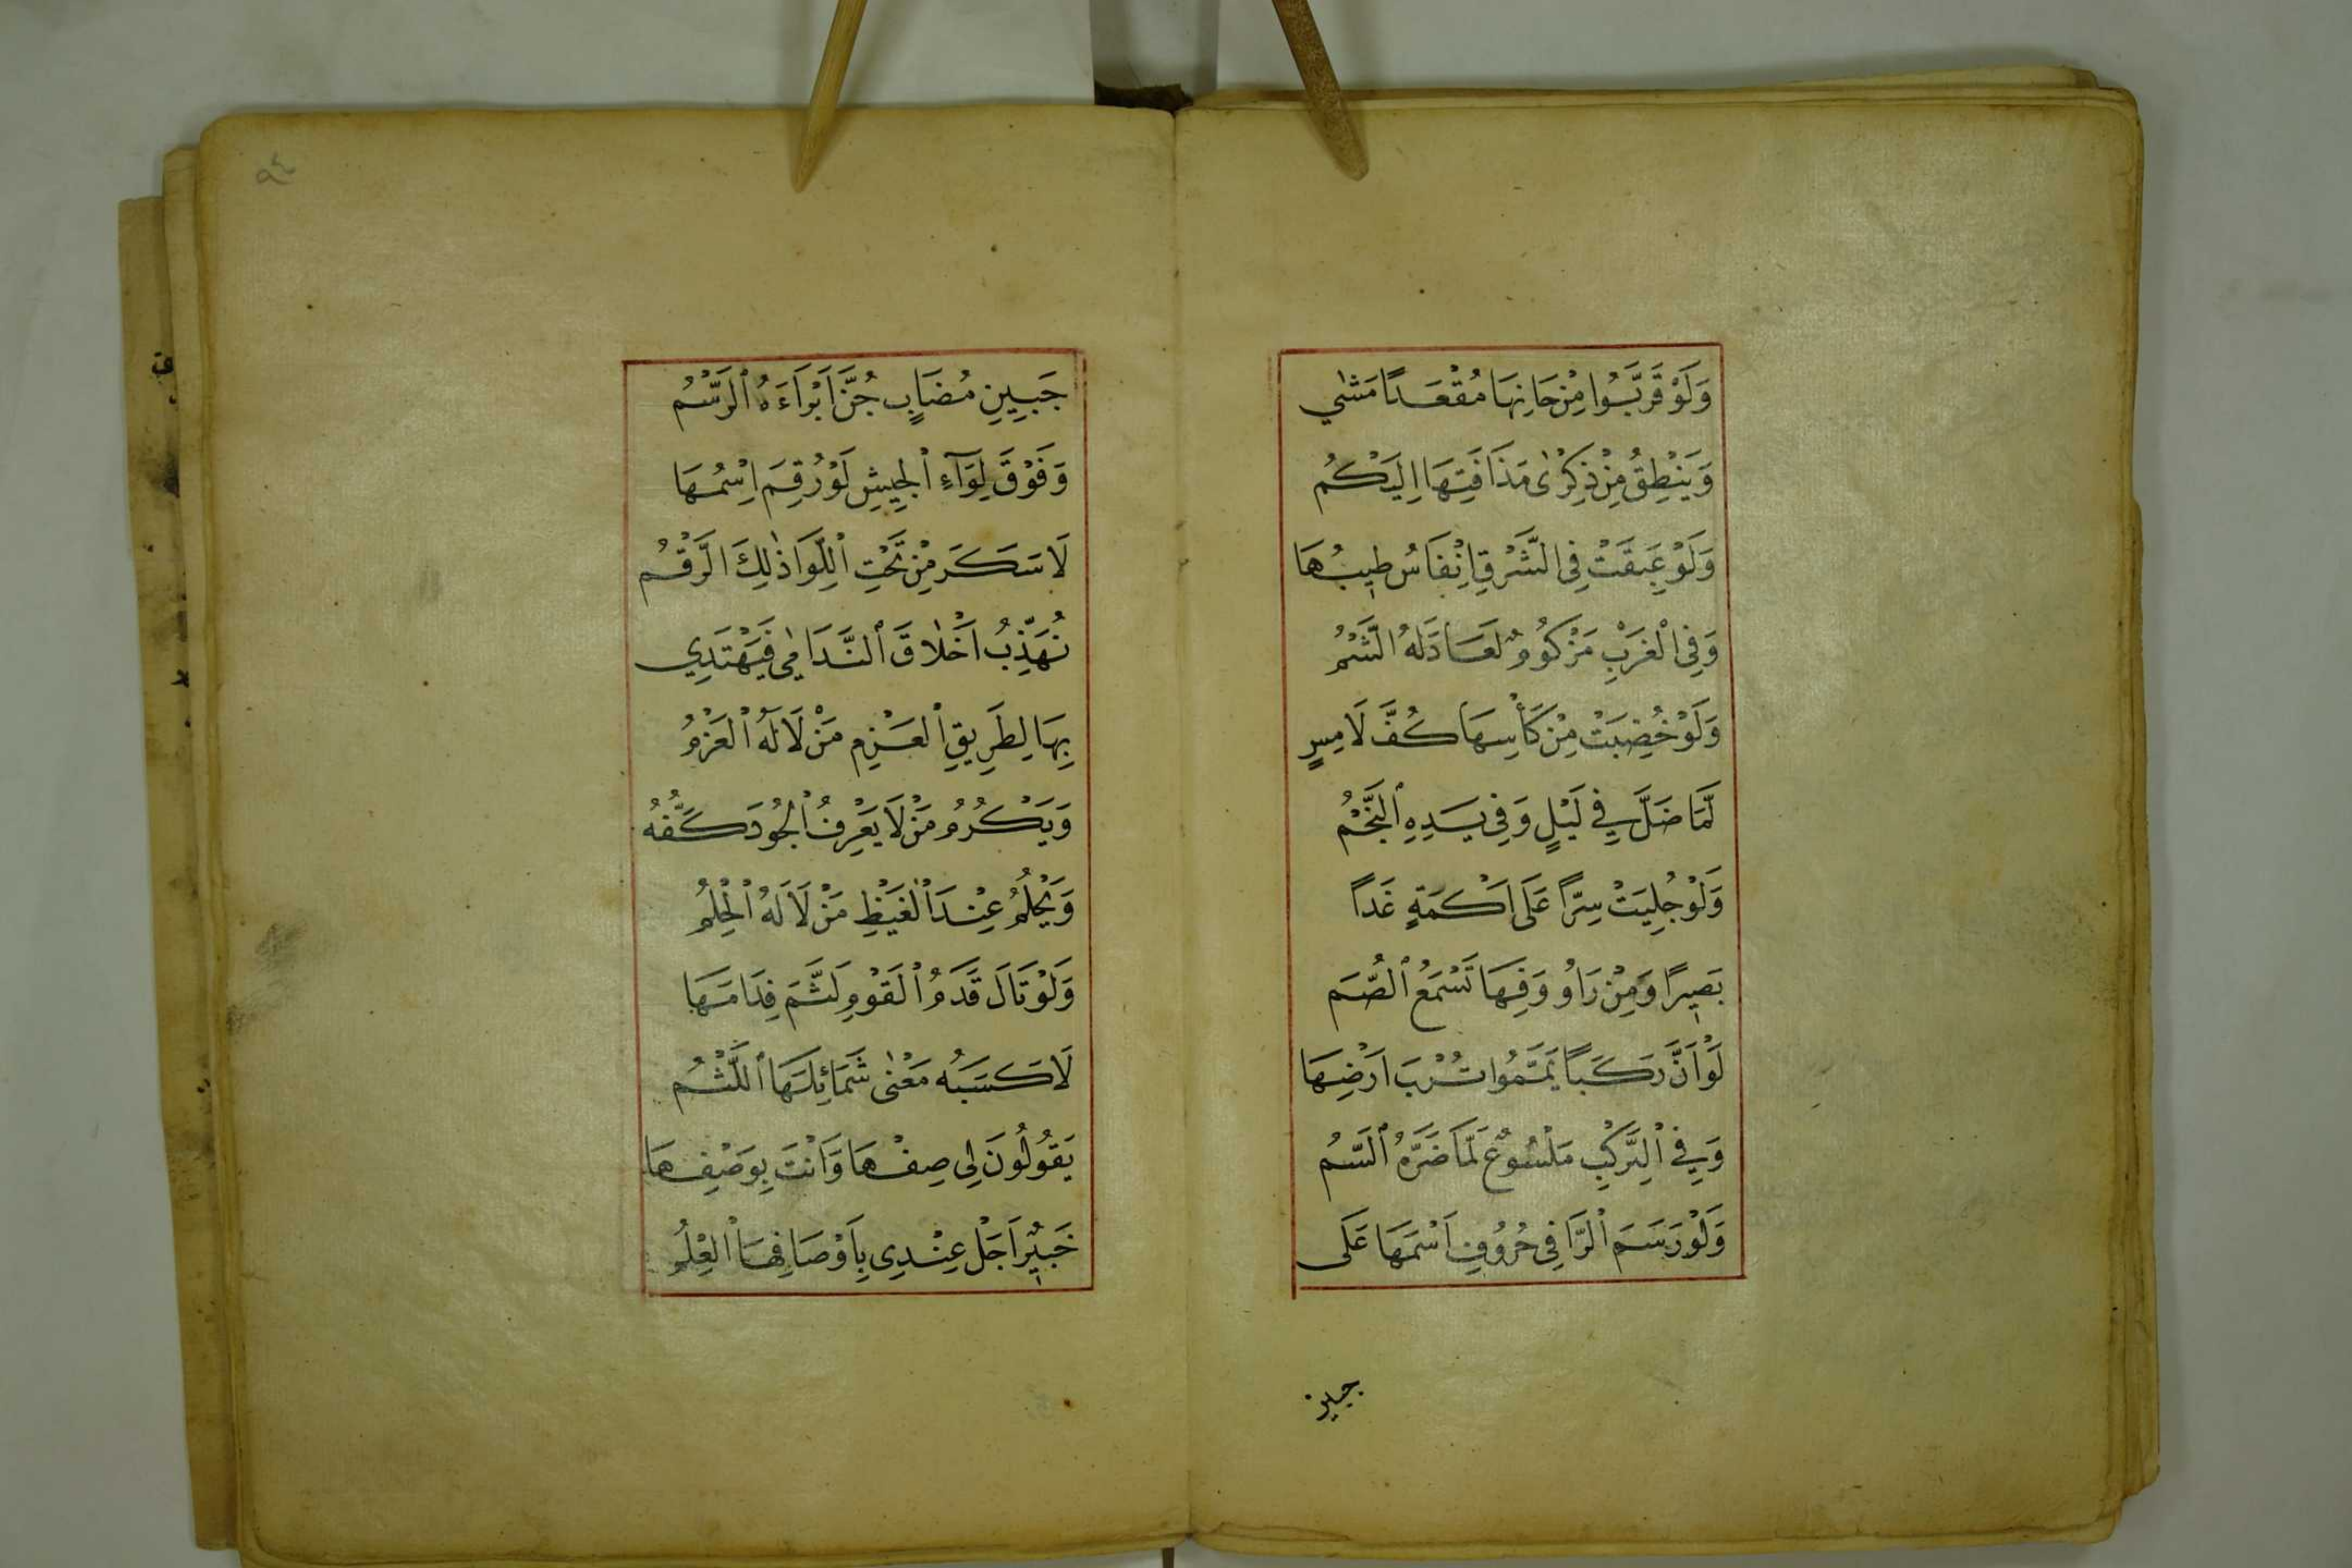 وَلَوْ قَرَّبُوا مِنْ حَانِهَا مُقْعَدًا مَشٰي
وَيَنْطِقُ مِنْ ذِكْرٰى مَذَاقَتِهَا اِلَيْكُمُ
وَلَوْ عَبِقَتْ فِي الشَّرْقِ اَنْفَاسُ طِيبُهَا
وَفِي الْغَرْبِ مَزْكُومٌ لَعَادَلَهُ الشَّمُّ
وَلَوْ خُضِبَتْ مِنْ كَأْسِهَا كُفَّ لَامِسٍ
لَمَّا ضَلَّ فِي لَيْلٍ وَفِي يَدِهِ النَّجْمُ
وَلَوْ جُلِيَتْ سِرًّا عَلَى اَكْمَةٍ غَدًا
بَصِيرًا وَمِنْ رَاوُ وَقِهَا تَسْمَعُ الصُّمَ
لَوْ اَنَّ رَكَبًا يَمَّمُوا تُرْبَ اَرْضِهَا
وَفِي الرَّكْبِ مَلْسُوعٌ لَمَّا ضَرَّهُ السَّمُ
وَلَوْ رَسَمَ الرَّا فِي حُرُوفِ اَسْمَهَا عَلَى
جبين
٩٤
جَبِينِ مُصَابٍ جُنَّ اَبْرَاَءَهُ الرَّسْمُ
وَفَوْقَ لِوَآءِ الْجِيشِ لَوْ رُقِمَ اِسْمُهَا
لَا سَكَرَ مِنْ تَحْتِ اللِّوَا ذٰلِكَ الرَّقْمُ
تُهَذِّبُ اَخْلَاقَ النَّدَامٰى فَيَهْتَدِي
بِهَا لِطَرِيقِ الْعَزْمِ مَنْ لَا لَهُ الْعَزْمُ
وَيَكْرُمُ مَنْ لَا يَعْرِفُ الْجُودَ كَفُّهُ
وَيَحْلُمُ عِنْدَ الْغَيْظِ مَنْ لَا لَهُ الْحِلْمُ
وَلَوْ نَالَ قَدَمُ الْقَوْمِ لَثَّمَ فِدَامَهَا
لَا كَسَبَهُ مَعْنٰى شَمَائِلَهَا اللَّثْمُ
يَقُولُونَ لِي صِفْهَا وَاَنْتَ بِوَصْفِهَا
خَبِيْرٌ اَجَلْ عِنْدِي بِاَوْصَافِهَا الْعِلْمُ